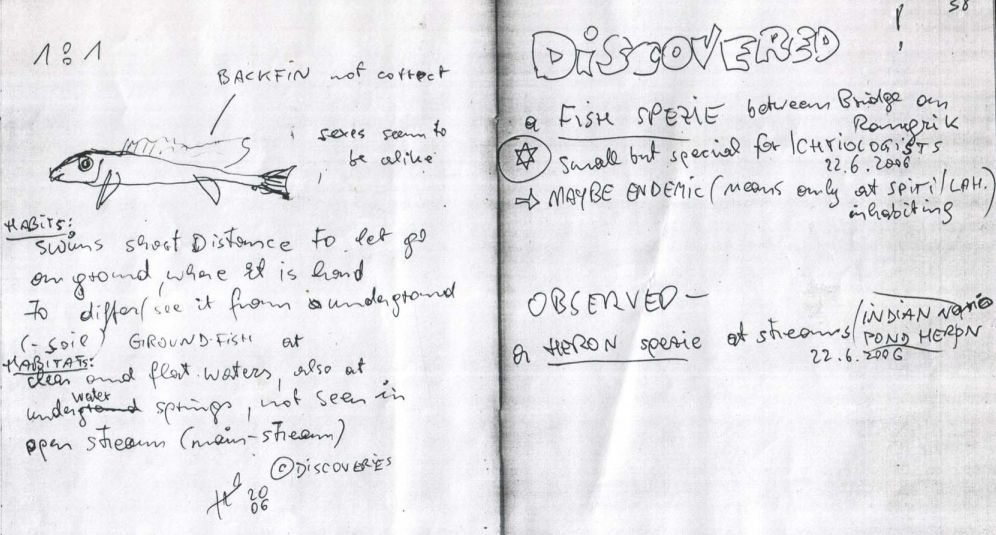 1:1
BACKFIN not correct
sexes seem to
be alike
HABITS:
swims short Distance to let go
on ground, where it is hard
To differ/see it from underground
(-soil) GROUND-FISH at
HABITATS:
clear and flat waters, also at
underground water springs, not seen in
open stream (main-stream)
© DISCOVERIES
20
06
58
!
DiSCOVERED
a FISH SPEZIE between Bridge on
Rangrik
small but special for ICHTIOLOGISTS
22.6.2006
⇒ MAYBE ENDEMIC (means only at SPITI/LAH.
inhabiting)
OBSERVED –
a HERON spezie at streams/INDIAN name
POND HERON
22.6.2006